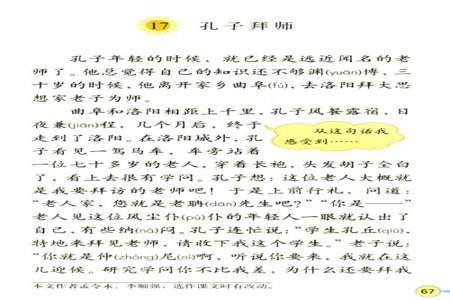 17 孔子拜师
孔子年轻的时候，就已经是远近闻名的老
师了。他总觉得自己的知识还不够渊(yuān)博，三
十岁的时候，他离开家乡曲阜(fù)，去洛阳拜大思
想家老子为师。
曲阜和洛阳相距上千里，孔子风餐露宿，日
夜兼(jiān)程，几个月后，终于
走到了洛阳。在洛阳城外，孔
子看见一驾马车，车旁站着
从这句话我
感受到……
一位七十多岁的老人，穿着长袍，头发胡子全白
了，看上去很有学问。孔子想：这位老人大概就
是我要拜访的老师吧！于是上前行礼，问道：
“老人家，您就是老聃(dān)先生吧？”“你是——”
老人见这位风尘仆(pú)仆的年轻人一眼就认出了
自己，有些纳(nà)闷。孔子连忙说：“学生孔丘(qiū)，
特地来拜见老师，请收下我这个学生。”老子说：
“你就是仲(zhòng)尼(ní)啊，听说你要来，我就在这
儿迎候。研究学问你不比我差，为什么还要拜我
本文作者孟令永、李顺强，选作课文时有改动。
67